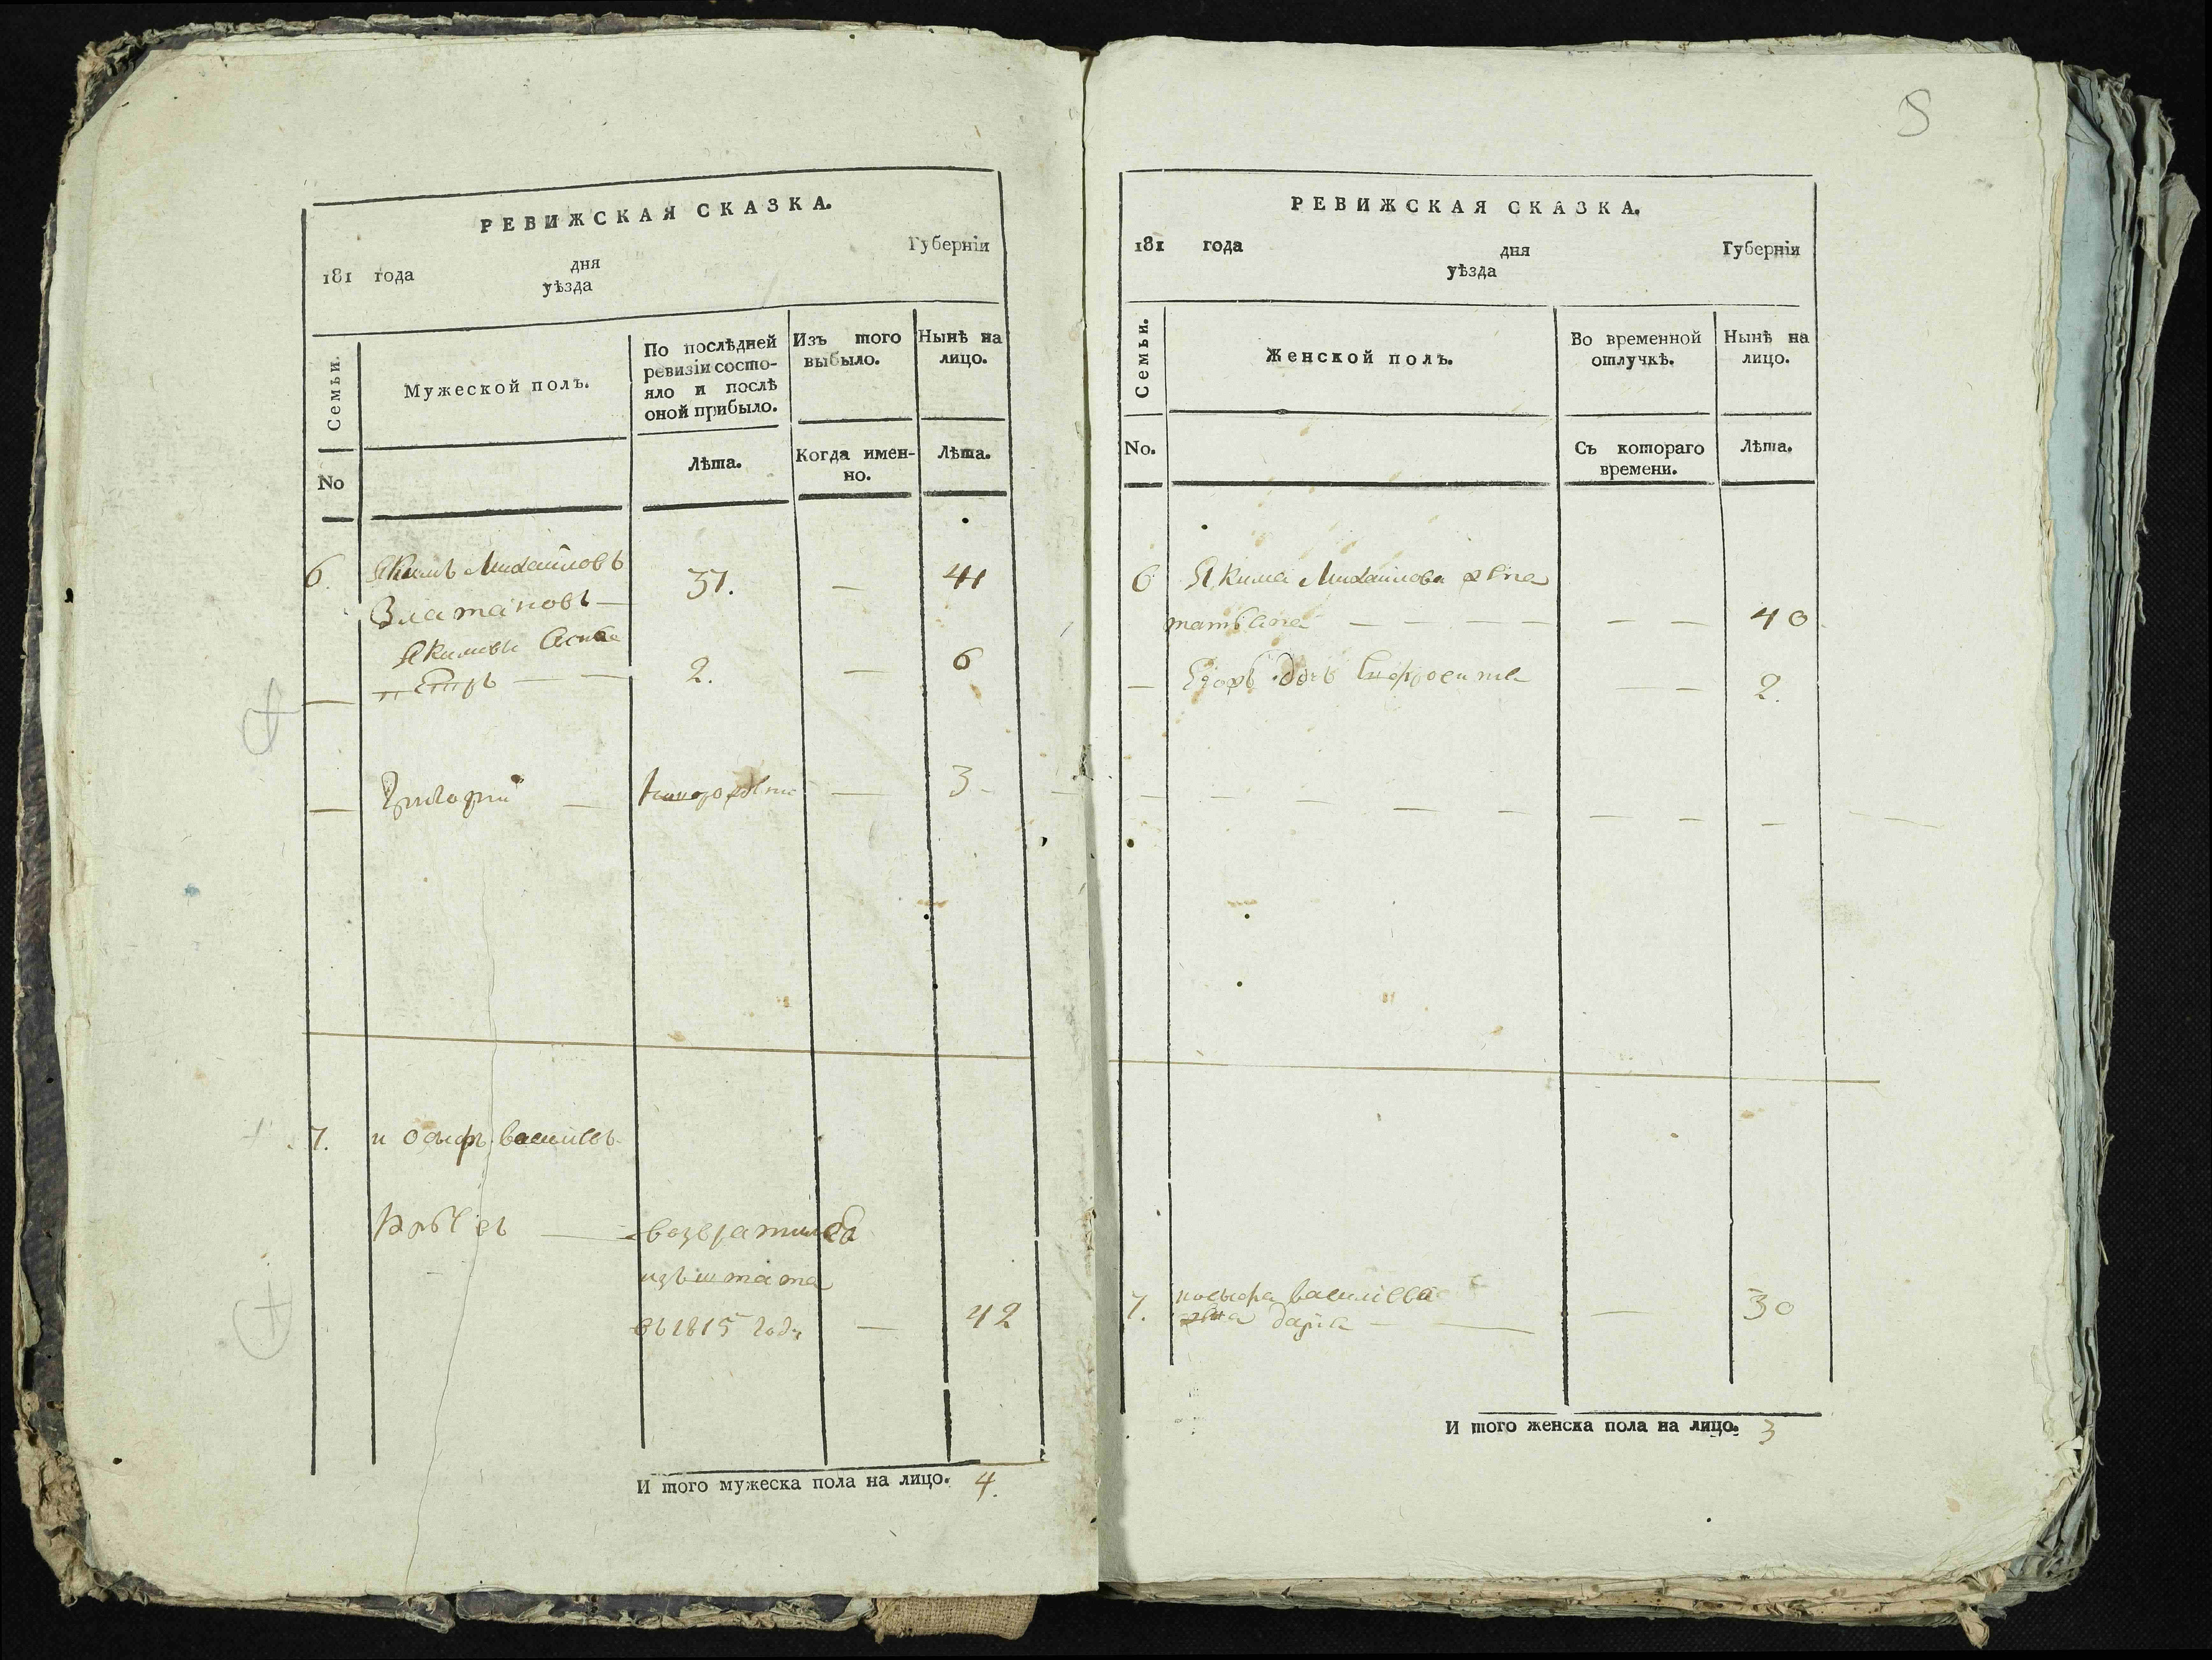 РЕВИЖСКАЯ СКАЗКА.
Губерніи
181 года дня
уѣзда
Семьи.
Мужеской полъ.
По послѣдней
ревизіи состо-
яло и послѣ
оной прибыло.
Изъ того
выбыло.
Нынѣ на
лицо.
No
Лѣта.
Когда имен-
но.
Лѣта.
6. Якимъ Михайловъ
Златановъ — 37. — 41
Якимовъ
Петръ — — 2. — 6
— Григорий — — 3 -
7. иосифъ василевъ
— возвратился
изъ штата
въ 1815 году — 42
И того мужеска пола на лицо. 4.
5
РЕВИЖСКАЯ СКАЗКА.
181 года дня Губерніи
уѣзда
Семьи.
Женской полъ.
Во временной
отлучкѣ.
Нынѣ на
лицо.
No.
Съ котораго
времени.
Лѣта.
6 Якима Михаилова жена
татьяна — — — — — — 40
— дочь — — 2.
7. иосифа василева
жена дарья — — — 30
И того женска пола на лицо. 3